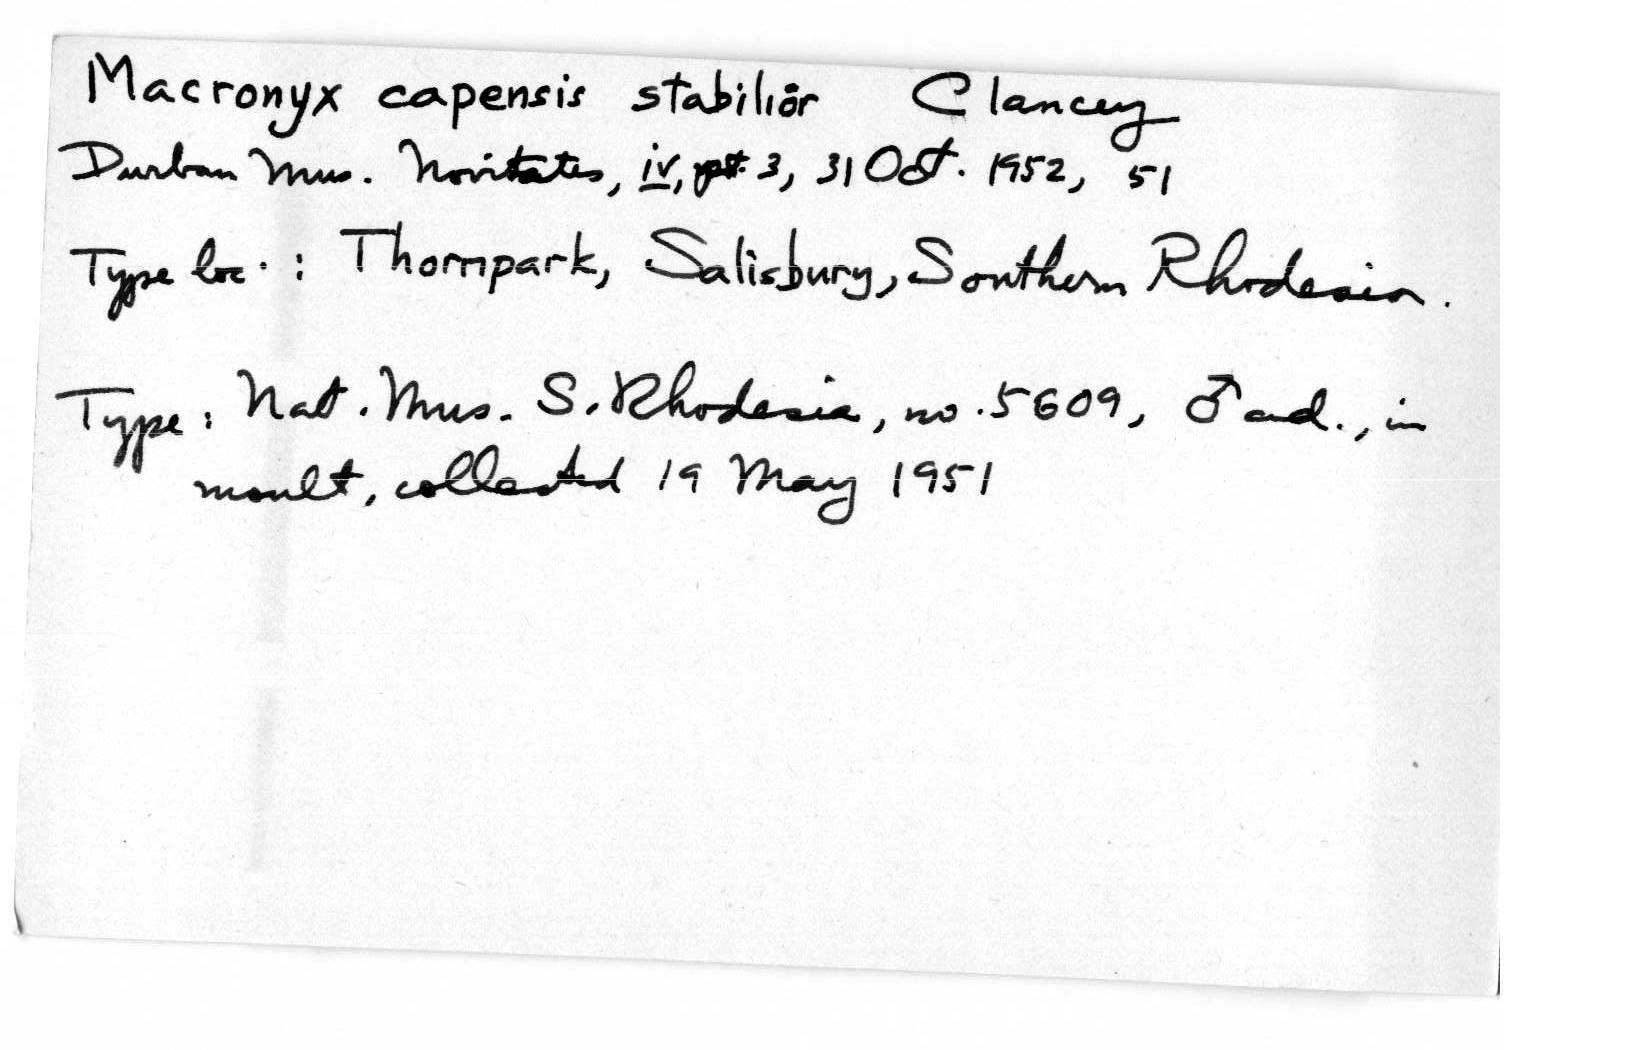 Macronyx capensis stabilior Clancey
Durban Mus. Novitates, iv, pt. 3, 31 Oct. 1952, 51
Type loc. : Thornpark, Salisbury, Southern Rhodesia.
Type : Nat. Mus. S. Rhodesia, no. 5609, ♂ ad., in
moult, collected 19 May 1951